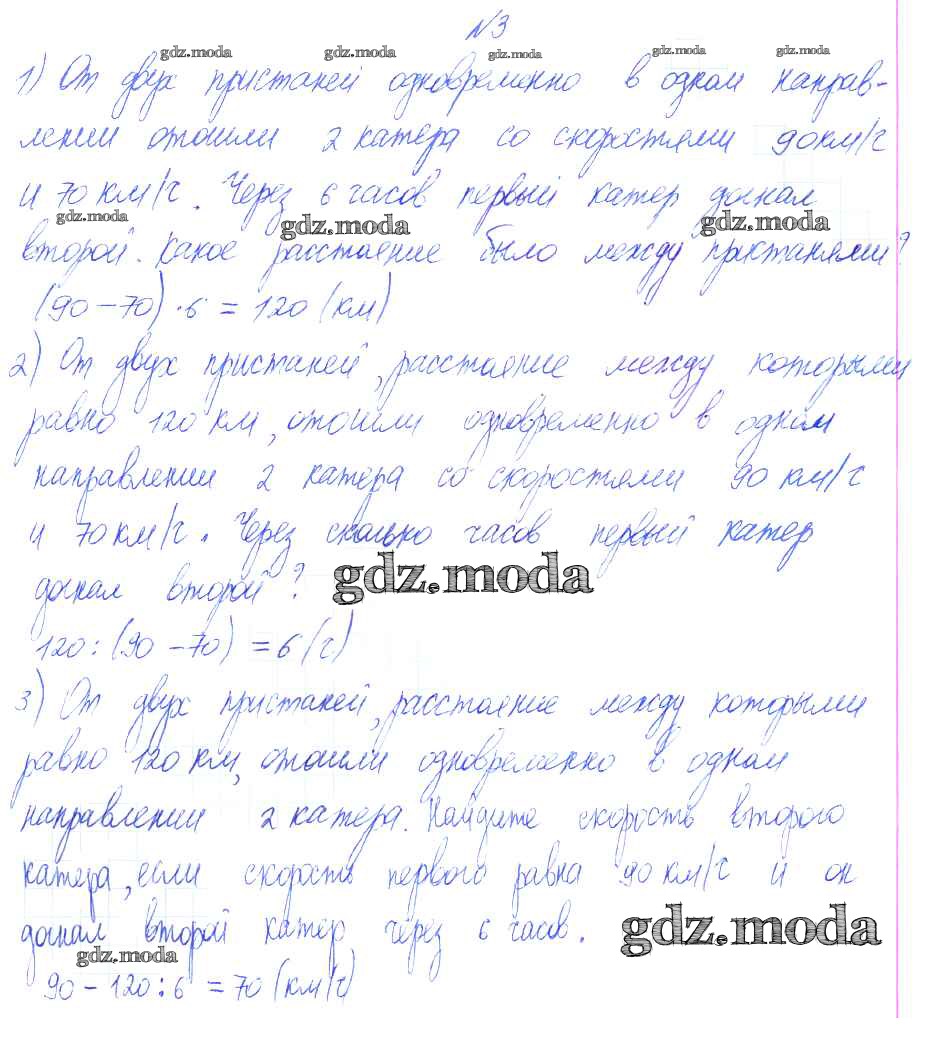 №3
gdz.moda gdz.moda gdz.moda gdz.moda gdz.moda
1) От двух пристаней одновременно в одном направ-
лении отошли 2 катера со скоростями 90км/ч
и 70 км/ч. Через 6 часов первый катер догнал
gdz.moda gdz.moda gdz.moda
второй. Какое расстояние было между пристанями?
(90-70)·6 = 120 (км)
2) От двух пристаней, расстояние между которыми
равно 120 км, отошли одновременно в одном
направлении 2 катера со скоростями 90 км/ч
и 70 км/ч. Через сколько часов первый катер
догнал второй?
gdz.moda
120:(90-70) = 6 (ч)
3) От двух пристаней, расстояние между которыми
равно 120 км, отошли одновременно в одном
направлении 2 катера. Найдите скорость второго
катера, если скорость первого равна 90 км/ч и он
догнал второй катер через 6 часов.
gdz.moda gdz.moda
90-120:6 = 70 (км/ч)